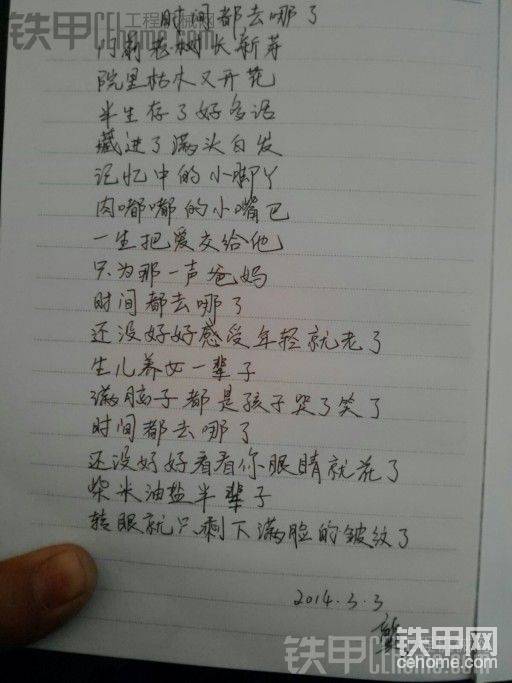 时间都去哪了
门前老树长新芽
院里枯木又开花
半生存了好多话
藏进了满头白发
记忆中的小脚丫
肉嘟嘟的小嘴巴
一生把爱交给他
只为那一声爸妈
时间都去哪了
还没好好感受年轻就老了
生儿养女一辈子
满脑子都是孩子哭了笑了
时间都去哪了
还没好好看看你眼睛就花了
柴米油盐半辈子
转眼就只剩下满脸的皱纹了
2014.3.3
铁甲 工程机械网
铁甲 工程机械网
铁甲网
cehome.com